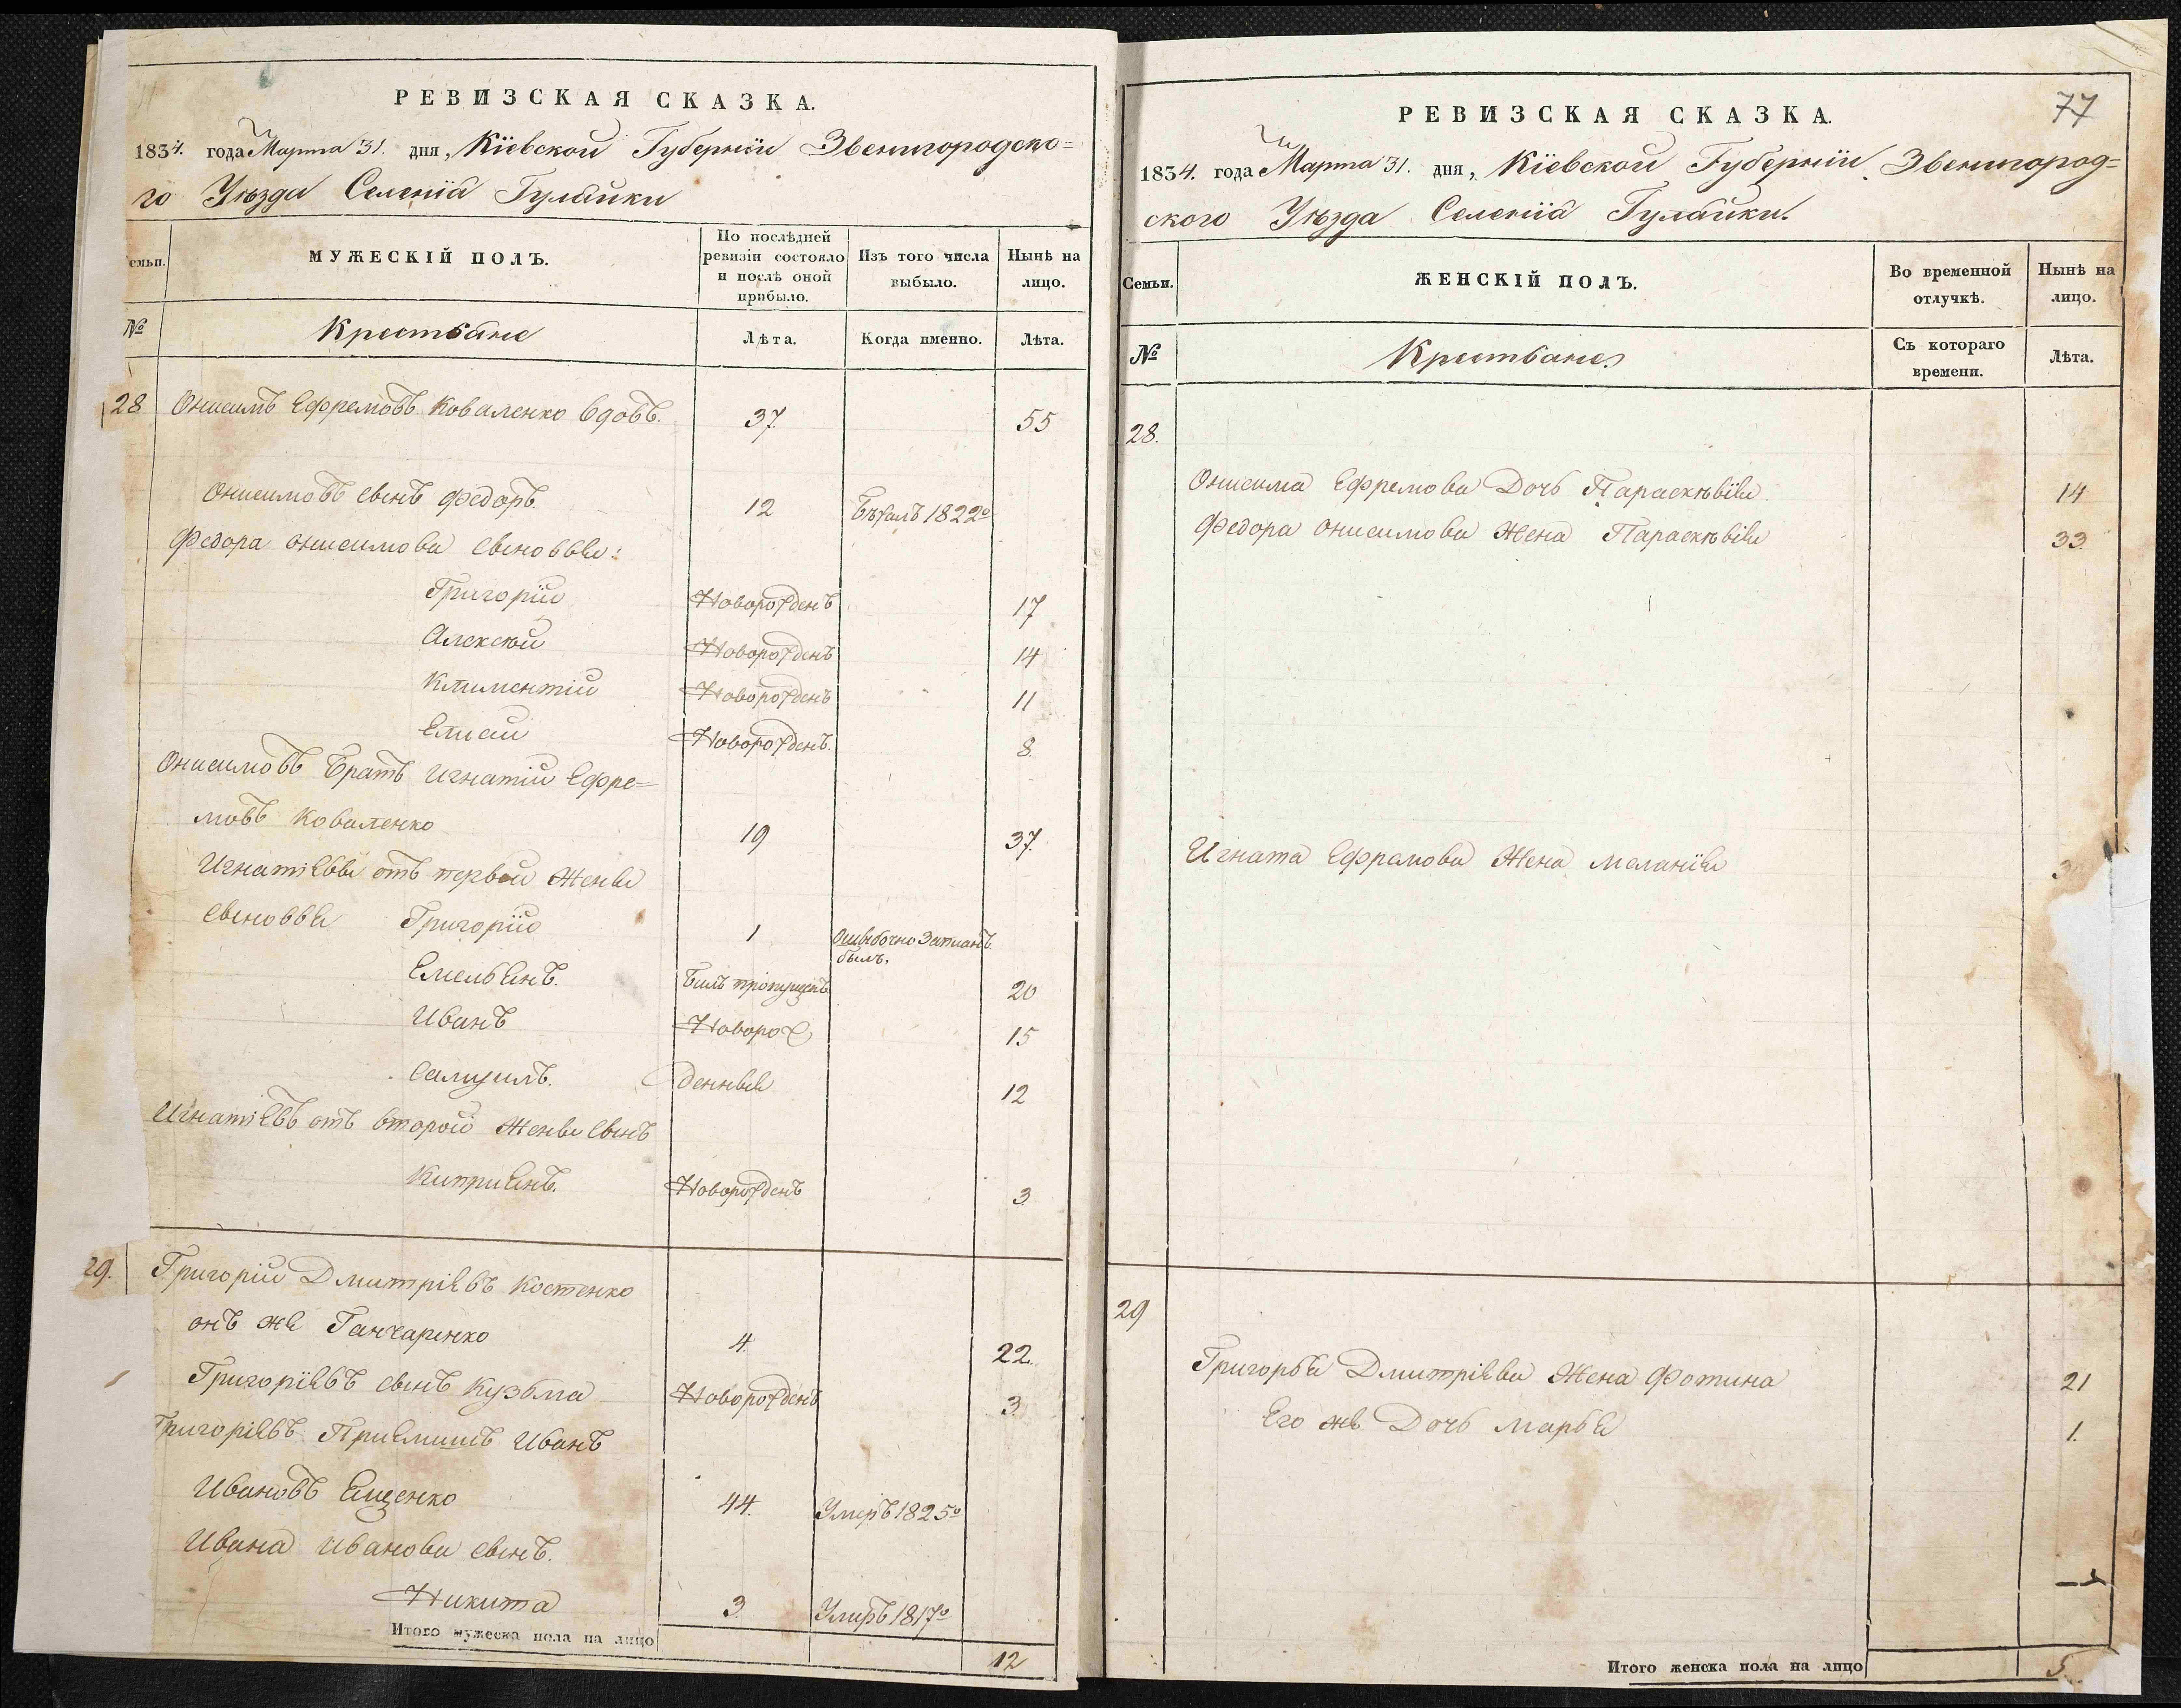 РЕВИЗСКАЯ СКАЗКА.
1834. года Марта 31. дня, Кіевской Губерніи Звенигородско=
го Уѣзда Селенія Гулайки
Семьи.
МУЖЕСКІЙ ПОЛЪ.
По послѣдней ревизіи состояло и послѣ оной прибыло.
Изъ того числа выбыло.
Нынѣ на лицо.
№
Крестьяне
Лѣта.
Когда именно.
Лѣта.
28 Онисимъ Ефремовъ Коваленко вдовъ. 37. 55
Онисимовъ сынъ Федоръ. 12 Бѣжалъ 1822го
Федора Онисимова сыновья:
Григорій Новорожденъ 17
Алексѣй Новорожденъ 14
Климентій Новорожденъ 11
Елисей Новорожденъ. 8.
Онисимовъ братъ Игнатій Ефре=
мовъ Коваленко 19 37.
Игнатіевы отъ первой жены
сыновья Григорій 1 Ошибочно записанъ
былъ.
Емельянъ. Былъ пропущенъ 20
Иванъ Новорож 15
Самуилъ. денные 12
Игнатіевъ отъ второй жены сынъ
Киприянъ. Новорожденъ 3.
29. Григорій Дмитріевъ Костенко
онъ же Ганчаренко 4. 22.
Григоріевъ сынъ Кузьма Новорожденъ 3.
Григоріевъ Приемишъ Иванъ
Ивановъ Ященко 44. Умеръ 1825го
Ивана Иванова сынъ.
Никита 3. Умеръ 1817го
Итого мужеска пола на лицо 12
77
РЕВИЗСКАЯ СКАЗКА.
1834. года Марта 31. дня, Кіевской Губерніи Звенигород=
ского Уѣзда Селенія Гулайки.
Семьи.
ЖЕНСКІЙ ПОЛЪ.
Во временной отлучкѣ.
Нынѣ на лицо.
№
Крестьяне
Съ котораго времени.
Лѣта.
28.
Онисима Ефремова Дочь Параскѣвія. 14
Федора Онисимова Жена Параскѣвія 33.
Игната Ефремова Жена Меланія
29
Григорья Дмитріева Жена Фотина 21
Его же Дочь Марья 1.
Итого женска пола на лицо 5.